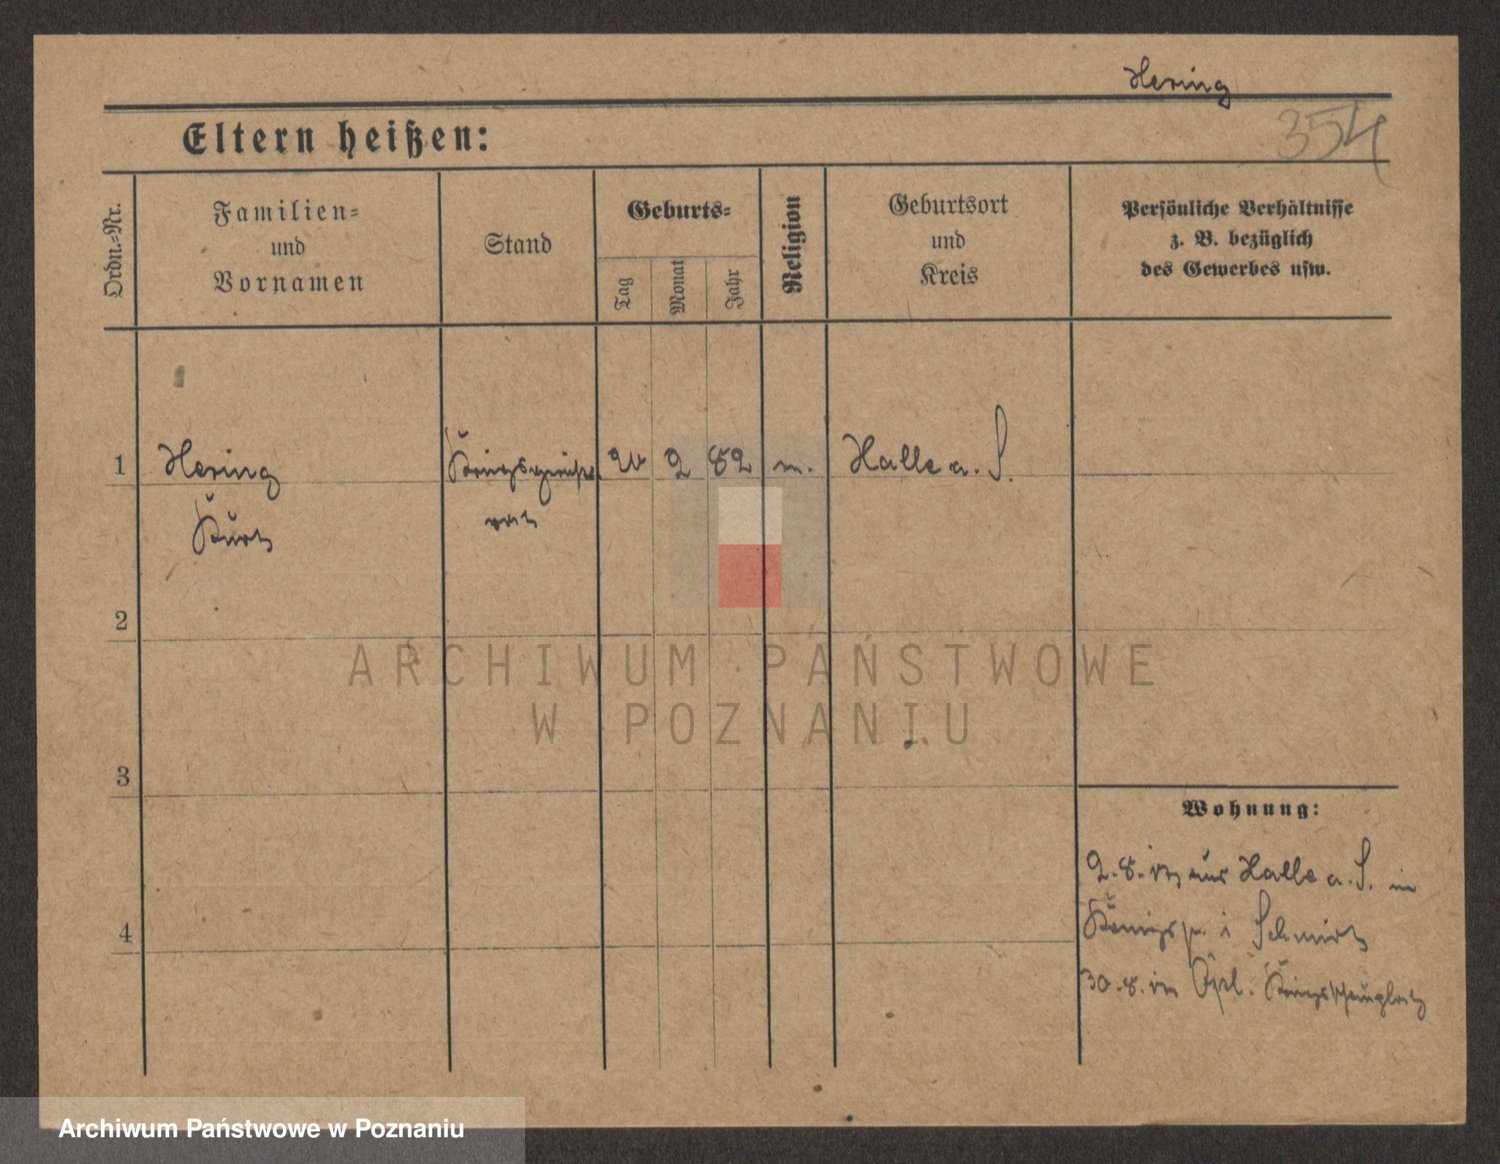 Hering
354
Eltern heißen:
Ordn.-Nr.
Familien-
und
Vornamen
Stand
Geburts-
Tag
Monat
Jahr
Religion
Geburtsort
und
Kreis
Persönliche Verhältnisse
z. B. bezüglich
des Gewerbes usw.
1
Hering
2 82
Halle a. S.
Kurt
rat
2
ARCHIWUM PAŃSTWOWE
W POZNANIU
3
Wohnung:
2. 8. aus Halle a. S. in
4
Schmidt
30. 8.
Archiwum Państwowe w Poznaniu